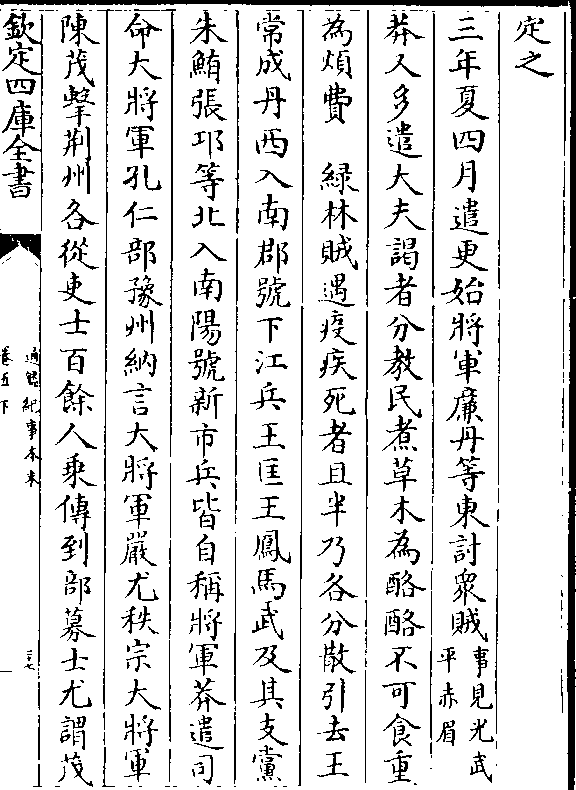 定之
三年夏四月遣更始將軍廉丹等東討眾賊事見光武平赤眉
莽又多遣大夫謁者分教民煮草木為酪酪不可食重
為煩費　綠林賊遇疫疾死者且半乃各分散引去王
常成丹西入南郡號下江兵王匡王鳳馬武及其支黨
朱鮪張卭等北入南陽號新市兵皆自稱將軍莽遣司
命大將軍孔仁部豫州納言大將軍嚴尤秩宗大將軍
陳茂擊荆州各從吏士百餘人乘傳到部募士尤謂茂
欽定四庫全書
通鑑紀事本末
卷五下
三七